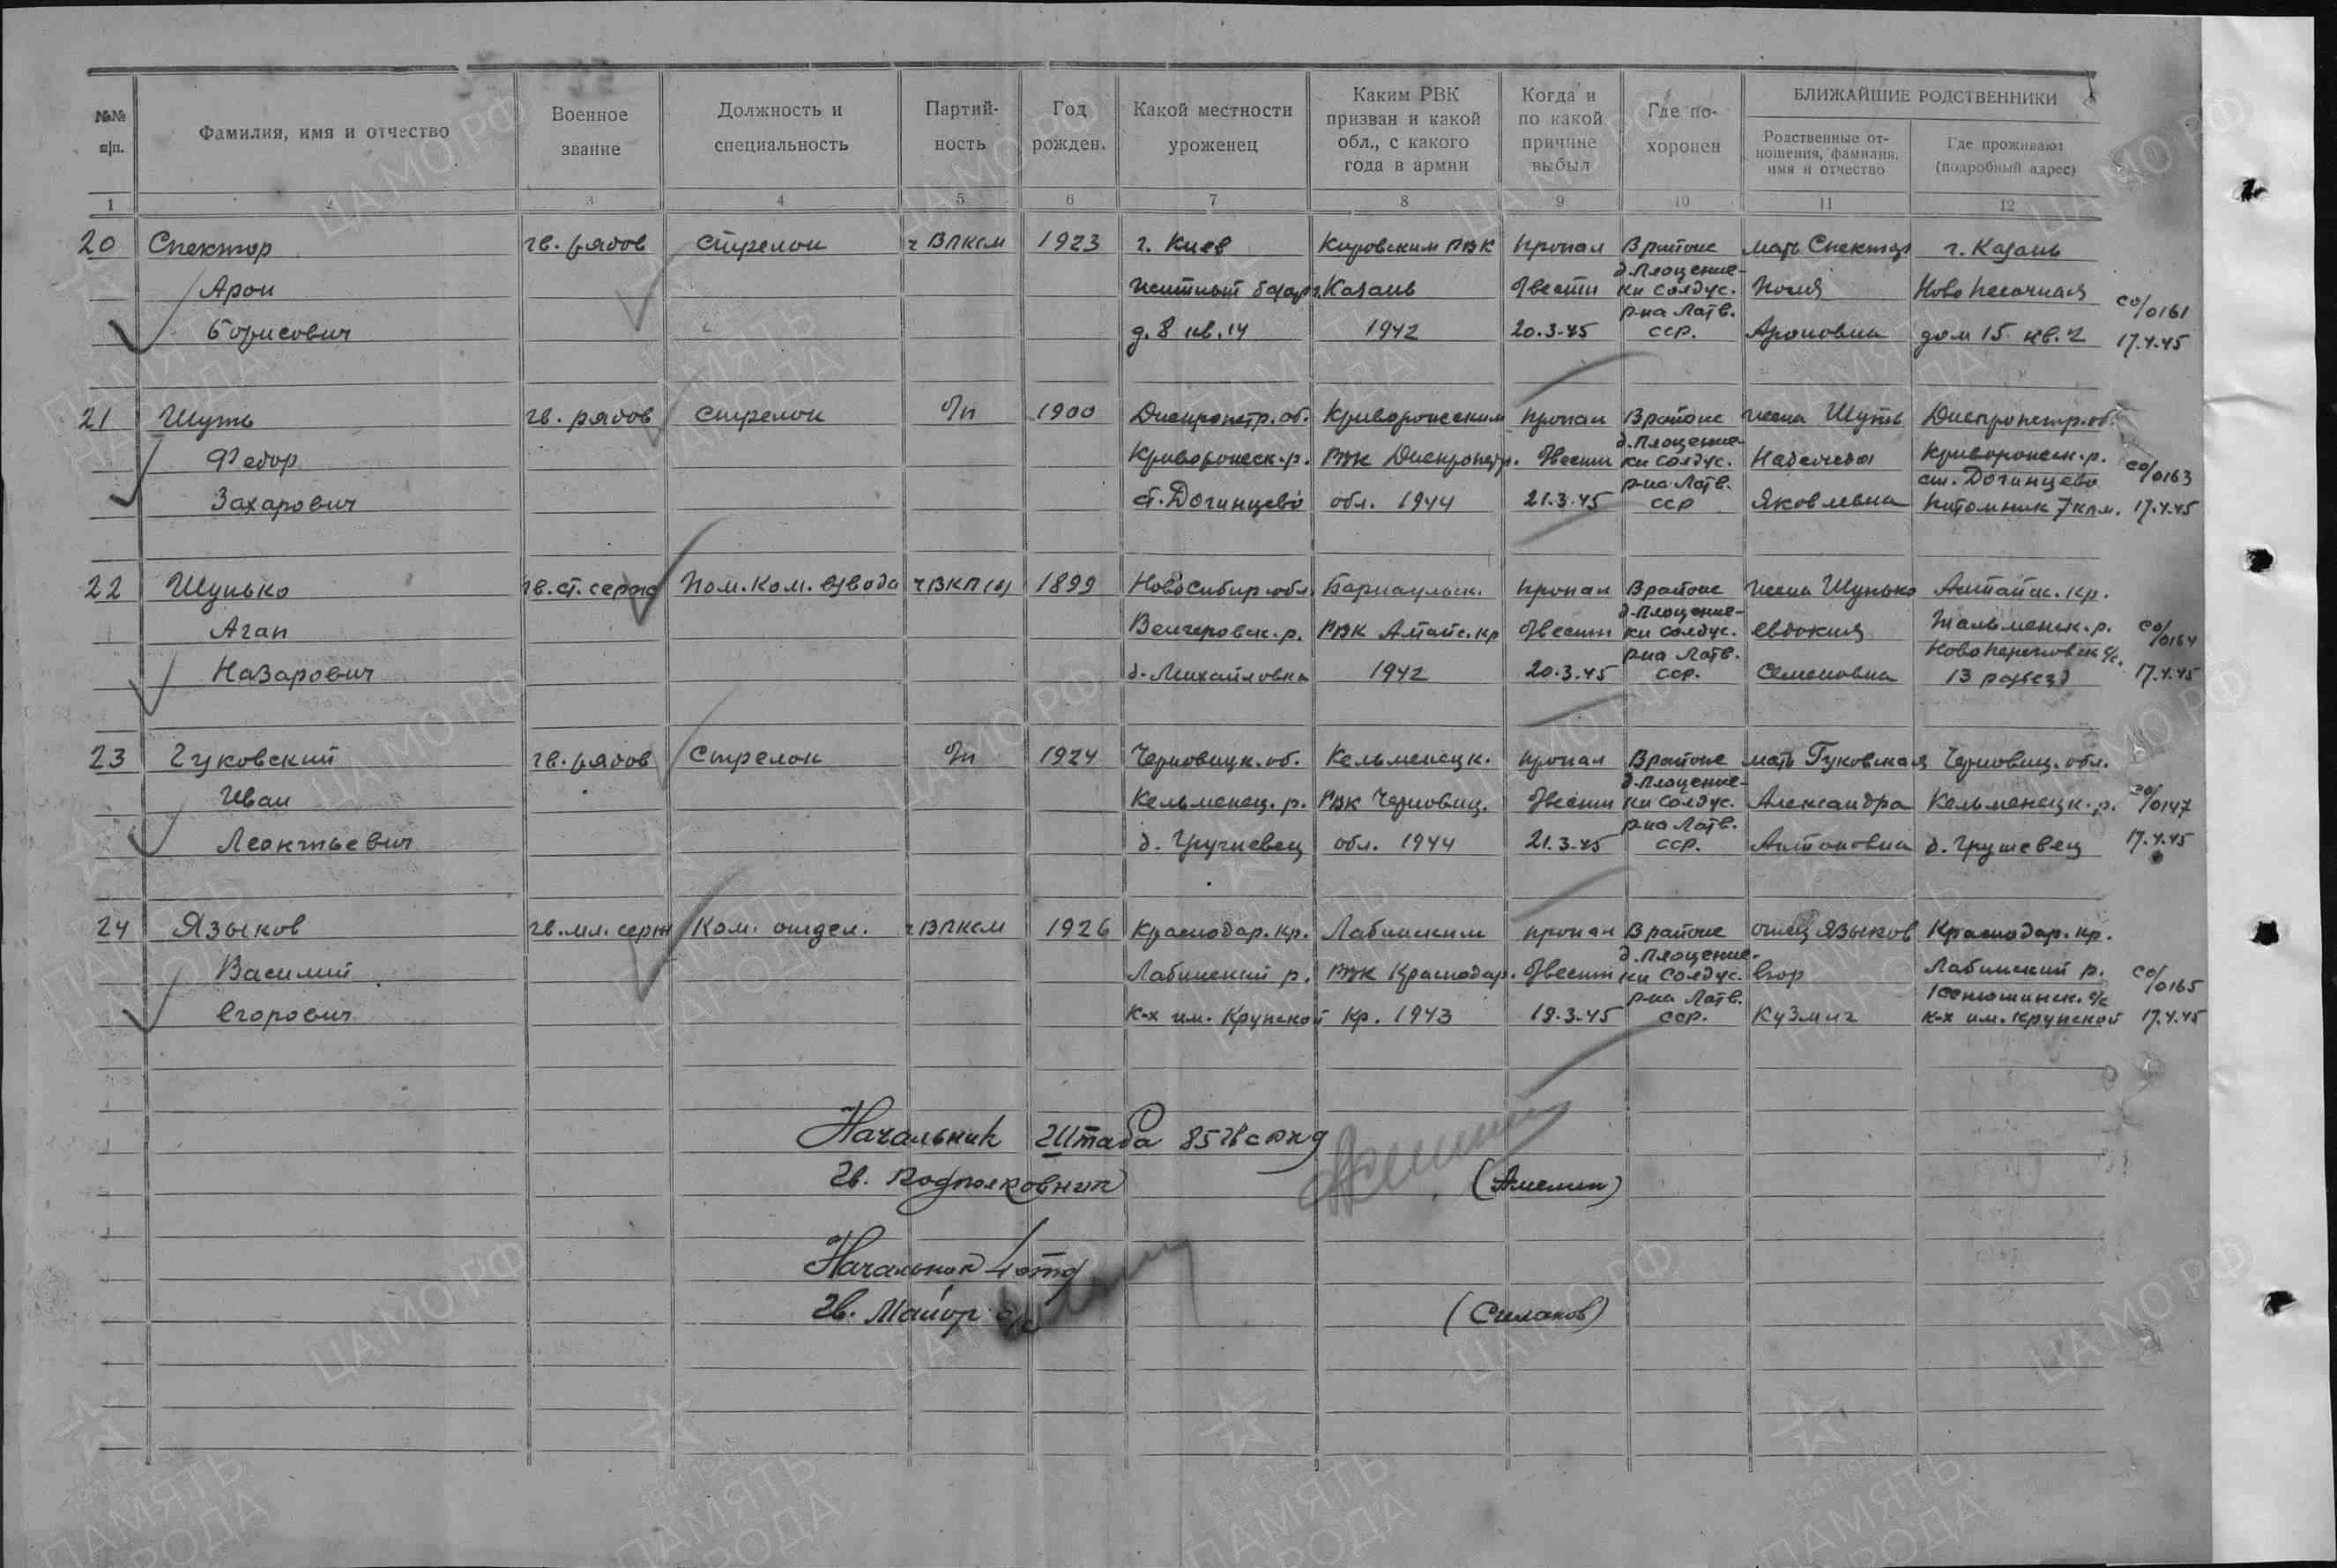 №№ п/п.
Фамилия, имя и отчество
Военное звание
Должность и специальность
Партий-
ность
Год рожден.
Какой местности уроженец
Каким РВК
призван и какой
обл., с какого
года в армии
Когда и
по какой
причине
выбыл
Где по-
хоронен
БЛИЖАЙШИЕ РОДСТВЕННИКИ
Родственные от-
ношения, фамилия,
имя и отчество
Где проживают
(подробный адрес)
1 2 3 4 5 6 7 8 9 10 11 12
20 Спектор гв. рядов стрелок чВЛКСМ 1923 г. Киев Кировским РВК пропал В районе мать Спектор г. Казань
Арон Житный базар г. Казань б/вести д. Плоцение-
ки Салдус. Ново песочная
Борисович д. 8 кв. 14 1942 20.3.45 р-на Латв.
сср. Ароновна дом 15 кв. 2 со/0161
17.4.45
21 Шуть гв. рядов стрелок б/п 1900 Днепропетр. об. Криворожским пропал В районе жена Шуть Днепропетр. об.
Федор Криворожск. р. РВК Днепропетр. б/вести д. Плоцение-
ки Салдус. Криворожск. р.
Захарович ст. Догинцево обл. 1944 21.3.45 р-на Латв.
сср Яковлевна ст. Догинцево
питомник 7 клм. со/0163
17.4.45
22 Шунько гв. ст. серж Пом. ком. взвода чВКП(б) 1899 Новосибир. обл Барнаульск. пропал В районе жена Шунько Алтайск. кр.
Агап Венгеровск. р. РВК Алтайс. кр б/вести д. Плоцение-
ки Салдус. Евдокия Тальменск. р.
Назарович д. Михайловка 1942 20.3.45 р-на Латв.
сср. Семеновна 13 разъезд со/0164
17.4.45
23 Гуковский гв. рядов Стрелок б/п 1924 Черновицк. об. Кельменецк. пропал В районе мать Гуковская Черновиц. обл.
Иван Кельменец. р. РВК Черновиц. б/вести д. Плоцение-
ки Салдус. Александра Кельменецк. р.
Леонтьевич обл. 1944 21.3.45 р-на Латв.
сср. Антоновна д. Грушевец со/0147
17.4.45
24 Языков гв. мл. серж Ком. отдел. чВЛКСМ 1926 Краснодар. кр. Лабинским пропал В районе отец Языков Краснодар. кр.
Василий Лабинский р. РВК Краснодар. б/вести д. Плоцение-
ки Салдус. Егор Лабинский р.
Егорович к-х им. Крупской кр. 1943 19.3.45 р-на Латв.
сср. Кузмич к-х им. Крупской со/0165
17.4.45
Начальник Штаба 85 гв с РКД
гв. Подполковник (Амелин)
Начальник 4 отд
гв. Майор а/с
ПАМЯТЬ НАРОДА
ЦАМО РФ